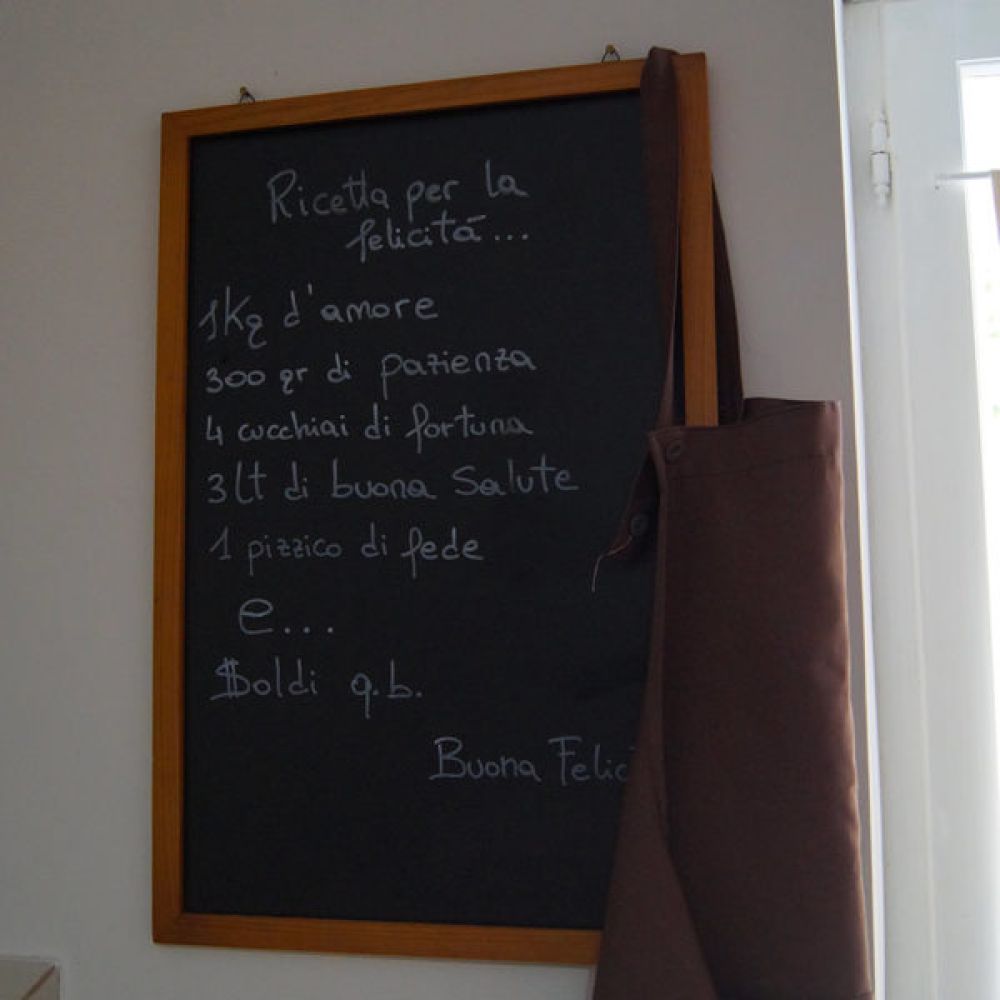 Ricetta per la
felicitá...
1Kg d'amore
300 gr di pazienza
4 cucchiai di fortuna
3Lt di buona Salute
1 pizzico di fede
e...
$oldi q.b.
Buona Felici